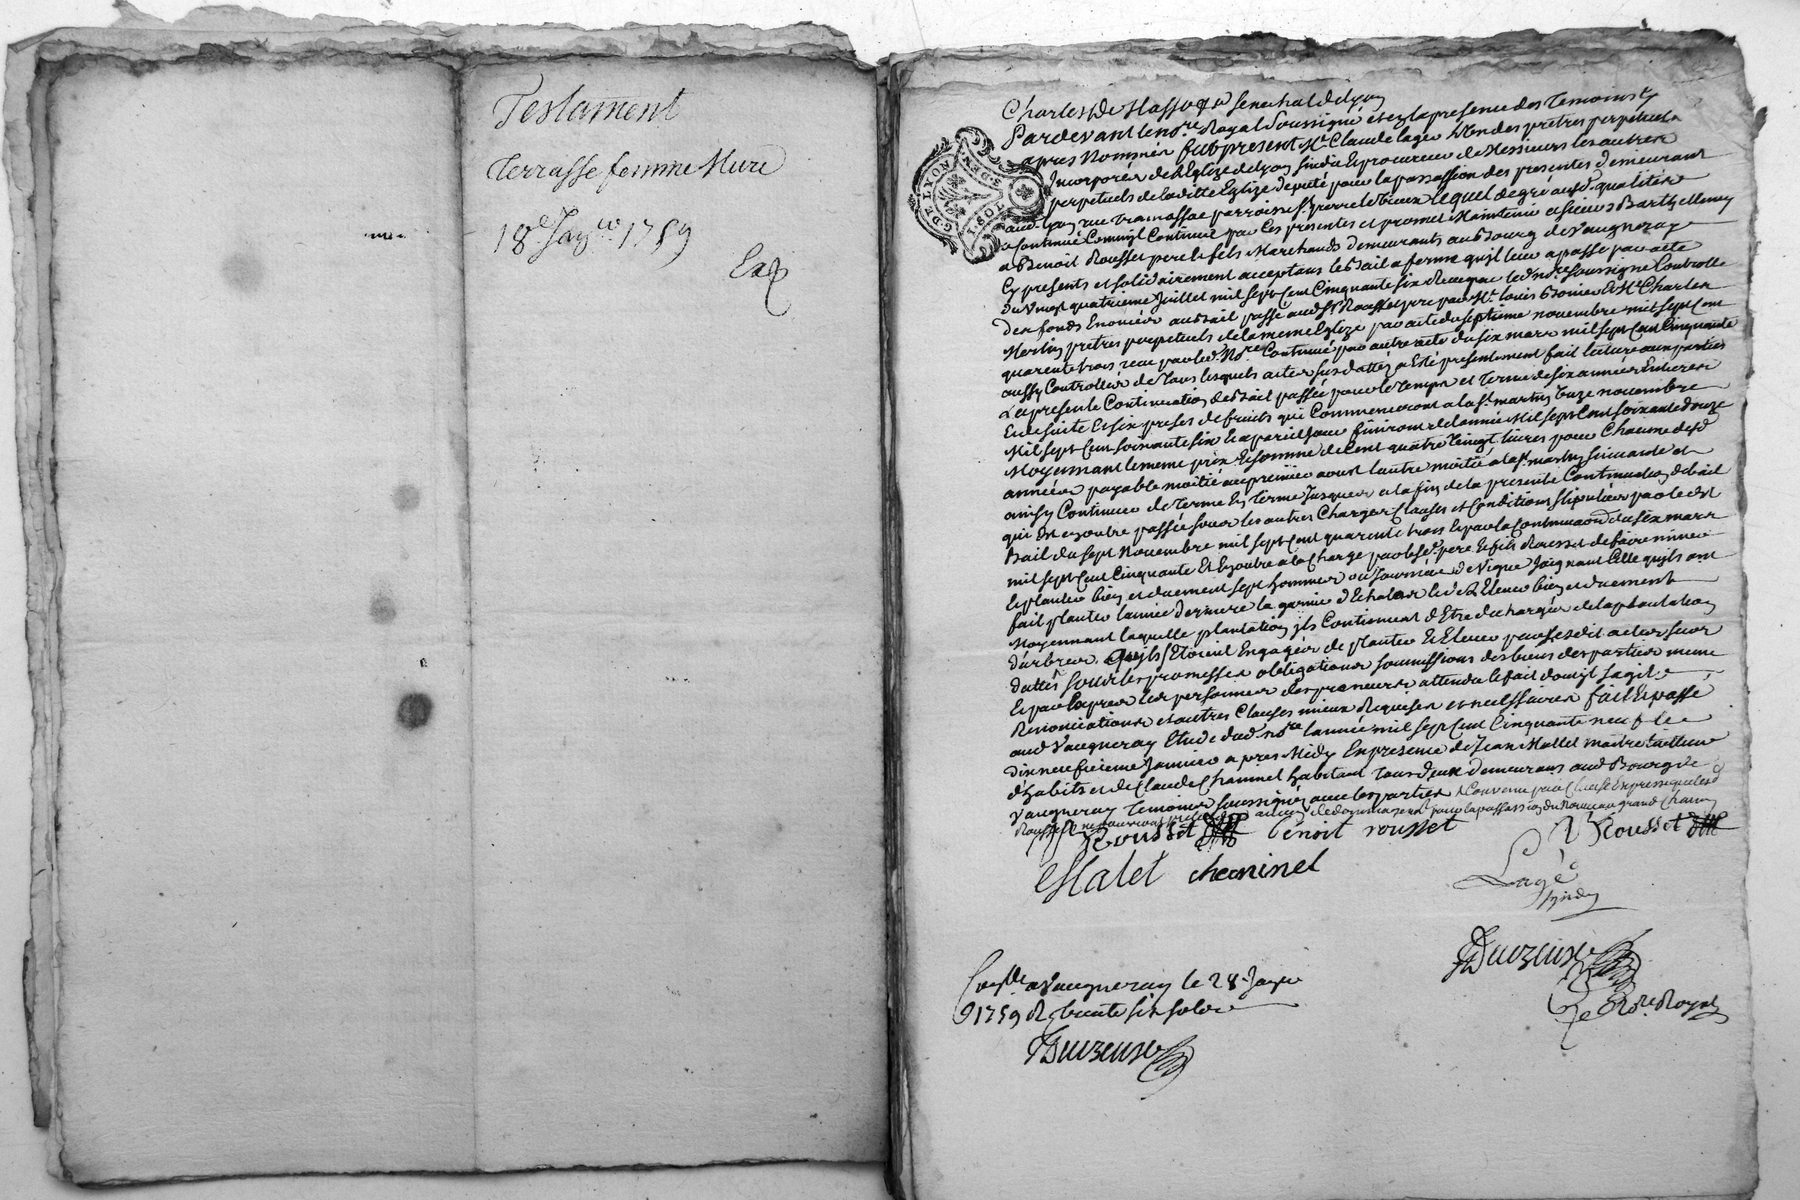 Testament
Terrasse femme Mure
18e Janver 1759
Exp
Charles De Masso Senechal de Lyon
Pardevant le nore Royal Soussigné et en la presence des temoins cy
apres Nommés fut present Mr Claude Lagée l'un des pretres perpetuels
Incorporés de l'Eglize de Lyon sindic et procureur de Messieurs les autres
perpetuels de la ditte Eglize deputé pour la passation des presentes demeurant
aud. Lyon rue tramassac parroisse St pierre le vieux lequel de gré aud. qualités
a Continué Comme il Continue par ces presentes et promet Maintenir a sieurs Barthelemy
et Benoit Rousset pere et fils Marchands demeurants au Bourg de Vaugneray
Cy presents et solidairement acceptans le Bail a ferme qu'il leur a passé par acte
du vingt quatrieme Juillet mil sept Cent Cinquante six Receu par led. nore soussigné Controllé
des fonds Enoncés au Bail passé aud. Sr Rousset pere par Mr Louis et Mr Charles
Merlin pretres perpetuels de la meme Eglize par acte du septieme novembre mil sept Cent
quarente trois receu par led. Nore Continué par autre acte du six mars mil sept Cent Cinquante
aussy Controllés de tous lesquels actes susdattés a Eté presentement fait lecture aux parties
La presente Continuation de Bail passée pour le temps et terme de six années Entieres
En desuitte et six prises de fruits qui Commenceront a la St martin onze novembre
Mil sept Cent soixante six et a pareil jour finiront de l'année Mil sept Cent soixante douze
Moyennant le meme prix et somme de Cent quatre vingt livres pour Chacune desd.
années payable moitié au premier aoust l'autre moitié a la St martin suivante et
ainsy Continuer de terme En terme Jusques a la fin de la presente Continuation de bail
qui Est en outre passée sous les autres Charges Clauses et Conditions stipulées par led.
Bail du sept Novembre mil sept Cent quarente trois et par la Continuaon du six mars
mil sept Cent Cinquante Et En outre a la Charge par lesd. pere et fils Rousset de faire miner
et planter bien et duement sept hommes ou Journées de Vigne Joignant Celle qu'ils ont
fait planter l'année derniere la garnir d'Echalas et l'Elever bien et duement
Moyennant laquelle plantation ils Conviennent d'Etre dechargés de la plantation
d'arbres qu'ils s'Etoient Engagés de planter et Elever par lesdit actes sus
dattés sous les promesses obligations soumissions des biens des parties meme
et par Exprès des personnes des preneurs attendu le fait dont il s'agit
Renonciations et autres Clauses mieux Requises et necessaires fait et passé
aud Vaugneray Etude dud. nore l'année mil sept Cent Cinquante neuf le
dix neufvieme Janvier apres Midy En presence de Jean Mallet maitre tailleur
d'habits et de Claude Chaminel habitant tous deux demeurans aud Bourg de
Vaugneray temoins soussignés avec les parties Convenu par Clause Expresse que lesd
Rousset ne pourront pretendre aucun dedommagement pour la passation du Nouveau grand Chemin
Rousset Benoit rousset Rousset
Mallet cheminel
Lagée
sindic
Duvzeuse
Nore Royal
Conllé a Vaugneray le 28e Janver
1759 R trente six sols
Duvzeuse
G. DE LYON